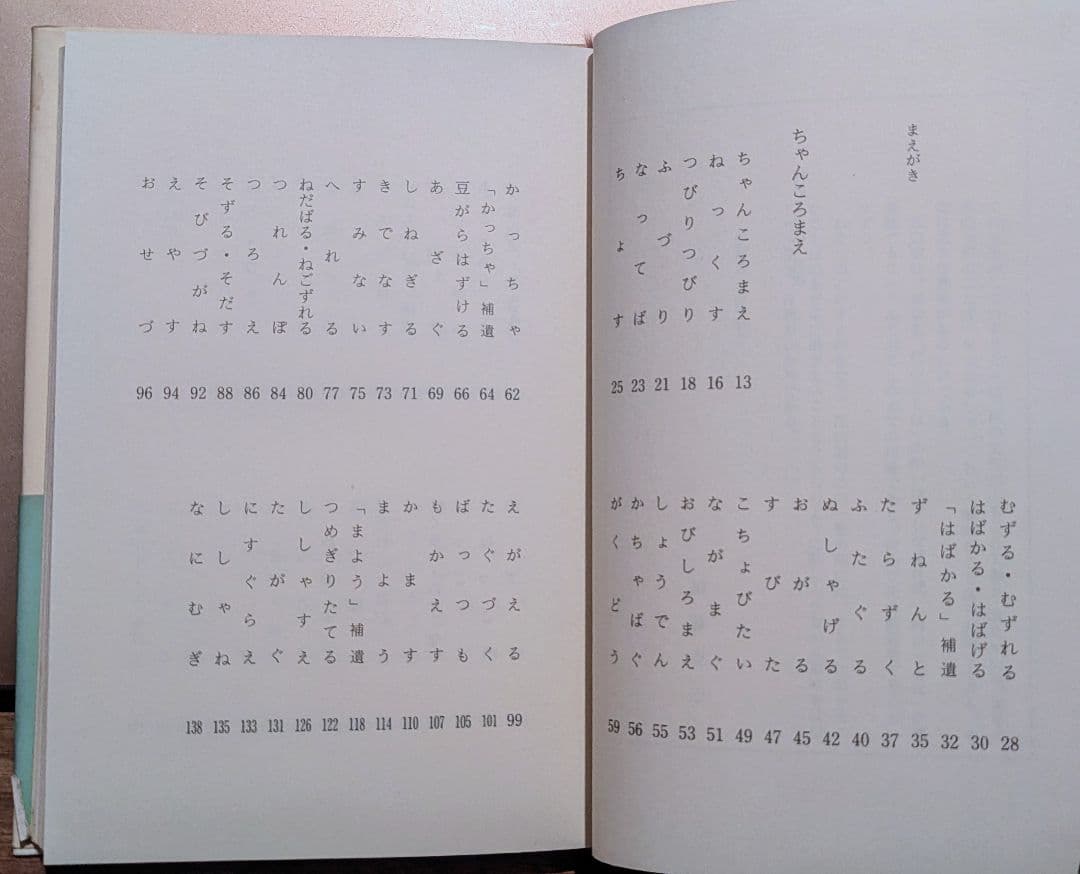 まえがき
ちゃんころまえ
ちゃんころまえ 13
ねっくす 16
つびりつびり 18
ふづり 21
なってば 23
ちょす 25
むずる・むずれる 28
はばかる・はばげる 30
「はばかる」補遺 32
ずねんと 35
たらずく 37
ふたぐる 40
ぬしゃげる 42
おがる 45
すびた 47
こちょびたい 49
ながまぐ 51
おびしろまえ 53
しょうでん 55
かちゃばぐ 56
がくどう 59
かっちゃ 62
「かっちゃ」補遺 64
豆がらはずける 66
あざぐ 69
しねぎる 71
きでなす 73
すみない 75
へれる 77
ねだばる・ねごずれる 80
つれんぽ 84
つろえ 86
そずる・そだす 88
そびづがね 92
えやす 94
おせづ 96
えがえる 99
たぐづく 101
ばっつも 105
もかえす 107
かます 110
まよう 114
「まよう」補遺 118
つめぎりたてる 122
ししゃすえ 126
たがぐ 131
にすぐらえ 133
ししゃね 135
なにむぎ 138